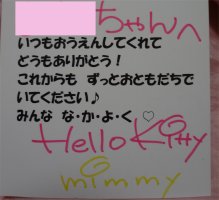 ちゃんへ
いつもおうえんしてくれて
どうもありがとう！
これからも ずっとおともだちで
いてください♪
みんな な・か・よ・く ♡
Hello Kitty
mimmy